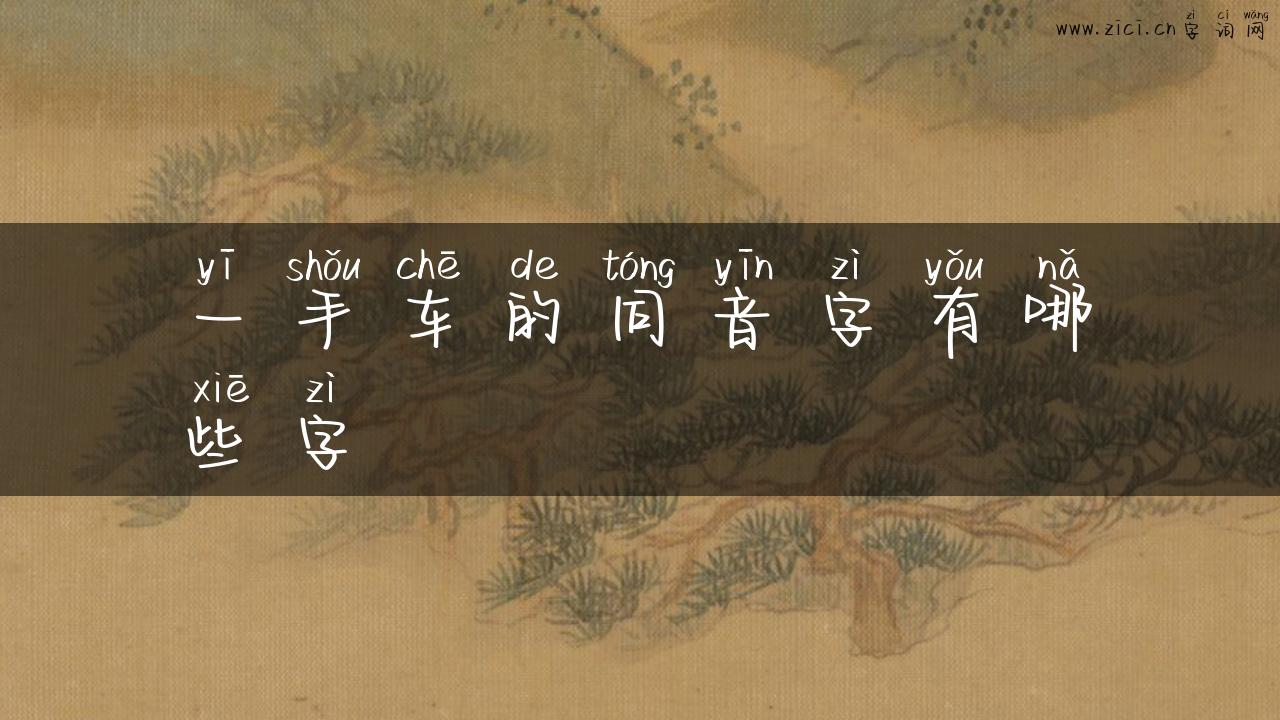 zì cí wǎng
www.zici.cn 字 词 网
yī shǒu chē de tóng yīn zì yǒu nǎ
一 手 车 的 同 音 字 有 哪
xiē zì
些 字